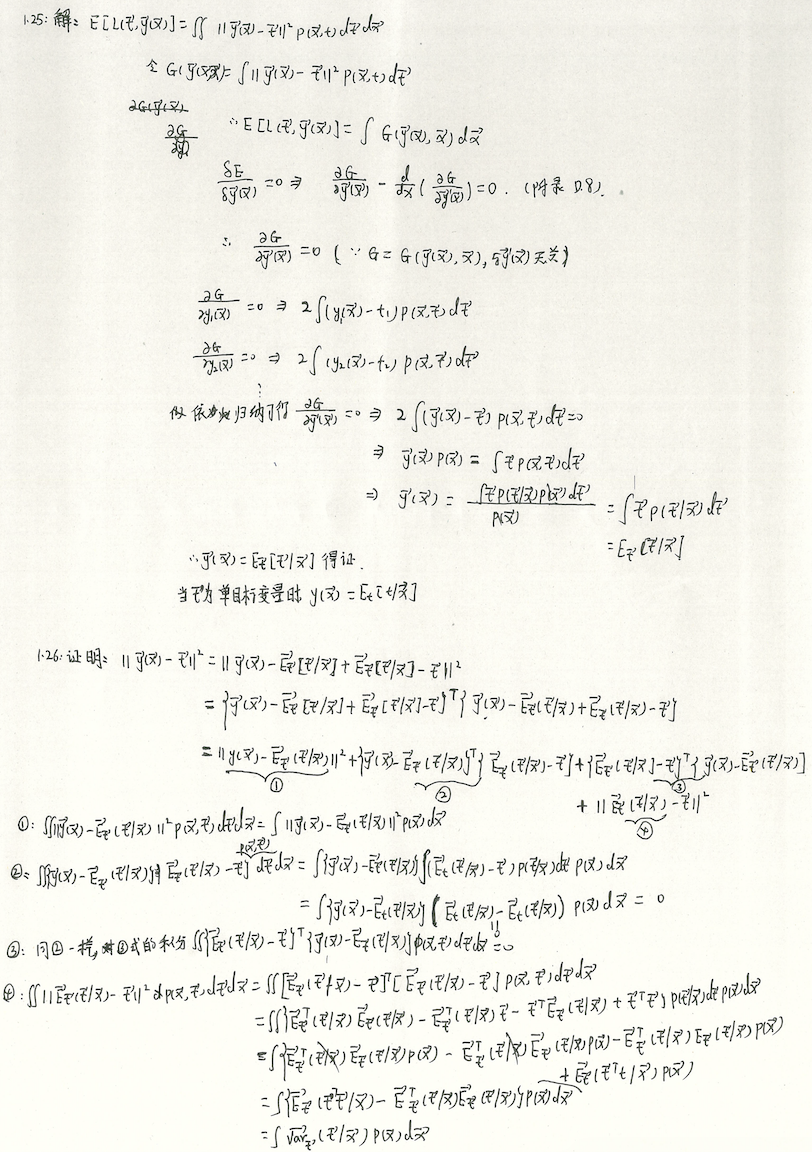 1.25: 解: E[L(t⃗, y⃗(x⃗))] = ∬ ||y⃗(x⃗) - t⃗||² p(x⃗,t) dt⃗ dx⃗
令 G(y⃗(x⃗), x⃗) = ∫ ||y⃗(x⃗) - t⃗||² p(x⃗,t) dt⃗
∴ E[L(t⃗, y⃗(x⃗))] = ∫ G(y⃗(x⃗), x⃗) dx⃗
δE/δy⃗(x⃗) = 0 ⇒ ∂G/∂y⃗(x⃗) - d/dx (∂G/∂y⃗'(x⃗)) = 0. (附录 D.8).
∴ ∂G/∂y⃗(x⃗) = 0 (∵ G = G(y⃗(x⃗), x⃗), 与y⃗'(x⃗) 无关)
∂G/∂y₁(x⃗) = 0 ⇒ 2∫(y₁(x⃗) - t₁) p(x⃗,t⃗) dt⃗
∂G/∂y₂(x⃗) = 0 ⇒ 2∫(y₂(x⃗) - t₂) p(x⃗,t⃗) dt⃗
⋮
归纳可得 ∂G/∂y⃗(x⃗) = 0 ⇒ 2∫(y⃗(x⃗) - t⃗) p(x⃗,t⃗) dt⃗ = 0
⇒ y⃗(x⃗) p(x⃗) = ∫ t⃗ p(x⃗,t⃗) dt⃗
⇒ y⃗(x⃗) = ∫ t⃗ p(t⃗/x⃗) p(x⃗) dt⃗ / p(x⃗) = ∫ t⃗ p(t⃗/x⃗) dt⃗
= E_t⃗[t⃗/x⃗]
∴ y⃗(x⃗) = E_t⃗[t⃗/x⃗] 得证.
当t⃗为单目标变量时 y(x⃗) = E_t[t/x⃗]
1.26: 证明: ||y⃗(x⃗) - t⃗||² = ||y⃗(x⃗) - E⃗_t⃗[t⃗/x⃗] + E⃗_t⃗[t⃗/x⃗] - t⃗||²
= {y⃗(x⃗) - E⃗_t⃗[t⃗/x⃗] + E⃗_t⃗[t⃗/x⃗] - t⃗}ᵀ {y⃗(x⃗) - E⃗_t⃗(t⃗/x⃗) + E⃗_t⃗(t⃗/x⃗) - t⃗}
= ||y(x⃗) - E⃗_t⃗(t⃗/x⃗)||² + {y⃗(x⃗) - E⃗_t⃗(t⃗/x⃗)}ᵀ {E⃗_t⃗(t⃗/x⃗) - t⃗} + {E⃗_t⃗(t⃗/x⃗) - t⃗}ᵀ {y⃗(x⃗) - E⃗_t⃗(t⃗/x⃗)}
① ② ③
+ ||E⃗_t⃗(t⃗/x⃗) - t⃗||²
④
①: ∬||y⃗(x⃗) - E⃗_t⃗(t⃗/x⃗)||² p(x⃗,t⃗) dt⃗ dx⃗ = ∫ ||y⃗(x⃗) - E⃗_t(t⃗/x⃗)||² p(x⃗) dx⃗
②: ∬{y⃗(x⃗) - E⃗_t⃗(t⃗/x⃗)}{E⃗_t⃗(t⃗/x⃗) - t⃗} p(x⃗,t⃗) dt⃗ dx⃗ = ∫{y⃗(x⃗) - E⃗_t(t⃗/x⃗)}∫(E⃗_t(t⃗/x⃗) - t⃗) p(t⃗/x⃗) dt⃗ p(x⃗) dx⃗
= ∫{y⃗(x⃗) - E⃗_t(t⃗/x⃗)} (E⃗_t(t⃗/x⃗) - E⃗_t(t⃗/x⃗)) p(x⃗) dx⃗ = 0
③: 同②一样, 对③式的积分 ∬{E⃗_t⃗(t⃗/x⃗) - t⃗}ᵀ {y⃗(x⃗) - E⃗_t⃗(t⃗/x⃗)} p(x⃗,t⃗) dt⃗ dx⃗ = 0
④: ∬||E⃗_t⃗(t⃗/x⃗) - t⃗||² p(x⃗,t⃗) dt⃗ dx⃗ = ∬[E⃗_t⃗(t⃗/x⃗) - t⃗]ᵀ [E⃗_t⃗(t⃗/x⃗) - t⃗] p(x⃗,t⃗) dt⃗ dx⃗
= ∬{E⃗_t⃗ᵀ(t⃗/x⃗) E⃗_t⃗(t⃗/x⃗) - E⃗_t⃗ᵀ(t⃗/x⃗) t⃗ - t⃗ᵀ E⃗_t⃗(t⃗/x⃗) + t⃗ᵀ t⃗} p(t⃗/x⃗) dt⃗ p(x⃗) dx⃗
= ∫{E⃗_t⃗ᵀ(t⃗/x⃗) E⃗_t⃗(t⃗/x⃗) p(x⃗) - E⃗_t⃗ᵀ(t⃗/x⃗) E⃗_t⃗(t⃗/x⃗) p(x⃗) - E⃗_t⃗ᵀ(t⃗/x⃗) E_t⃗(t⃗/x⃗) p(x⃗)
+ E⃗_t⃗(t⃗ᵀt/x⃗) p(x⃗)
= ∫{E⃗_t⃗(t⃗ᵀt⃗/x⃗) - E⃗_t⃗ᵀ(t⃗/x⃗) E⃗_t⃗(t⃗/x⃗)} p(x⃗) dx⃗
= ∫ Var_t⃗(t⃗/x⃗) p(x⃗) dx⃗